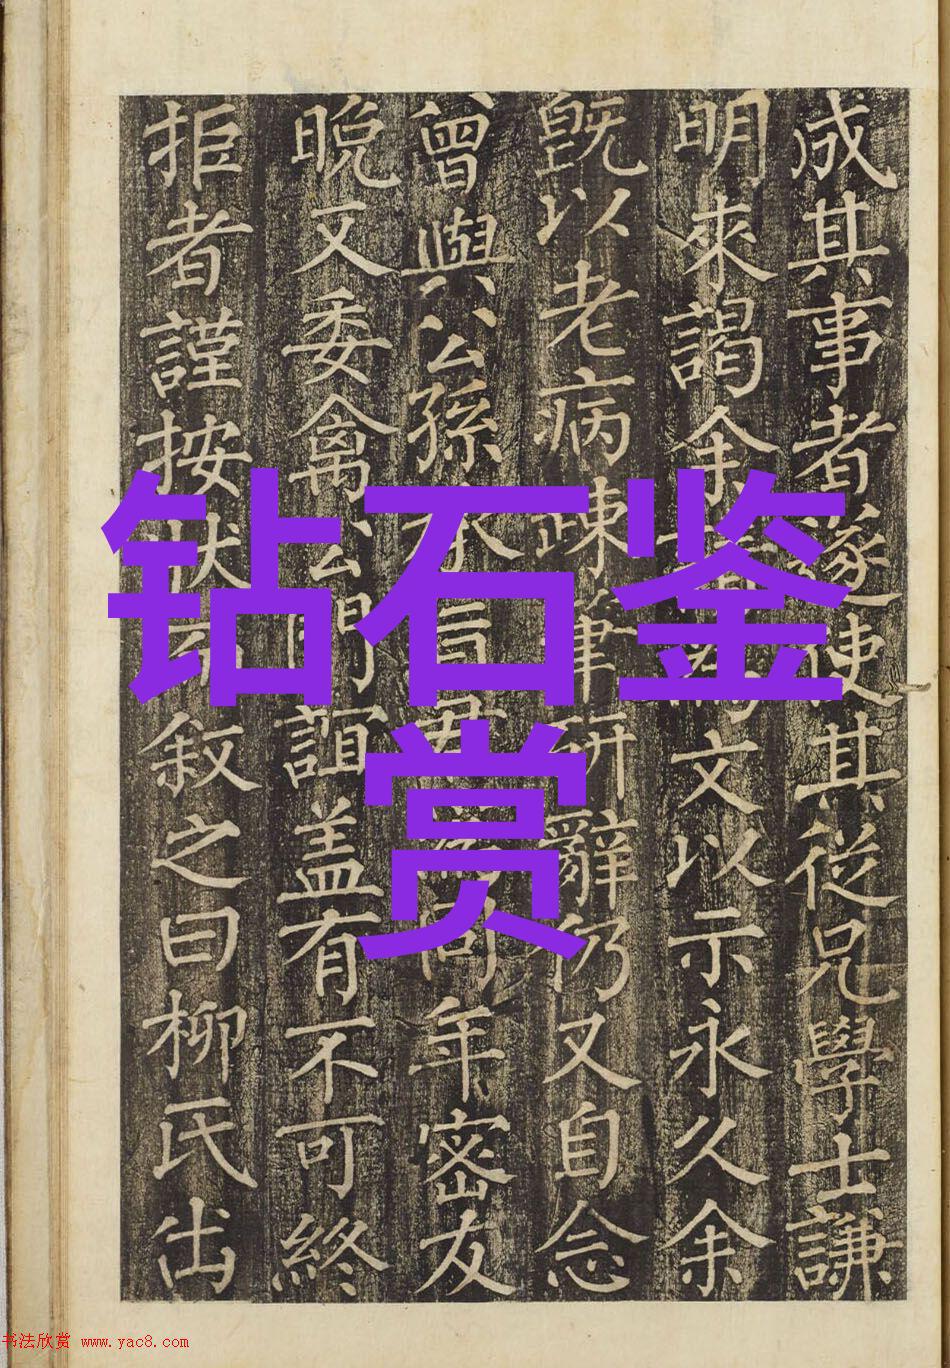 成其事者遂使其從兄學士謙
明來謁余文以示永久余
旣以老病踈筆研辭仍又自念
曾與公孫同年密友
晚又委禽公門誼盖有不可終
拒者謹按狀而叙之曰柳氏出
钻石鉴
赏
书法欣赏 www.yac8.com